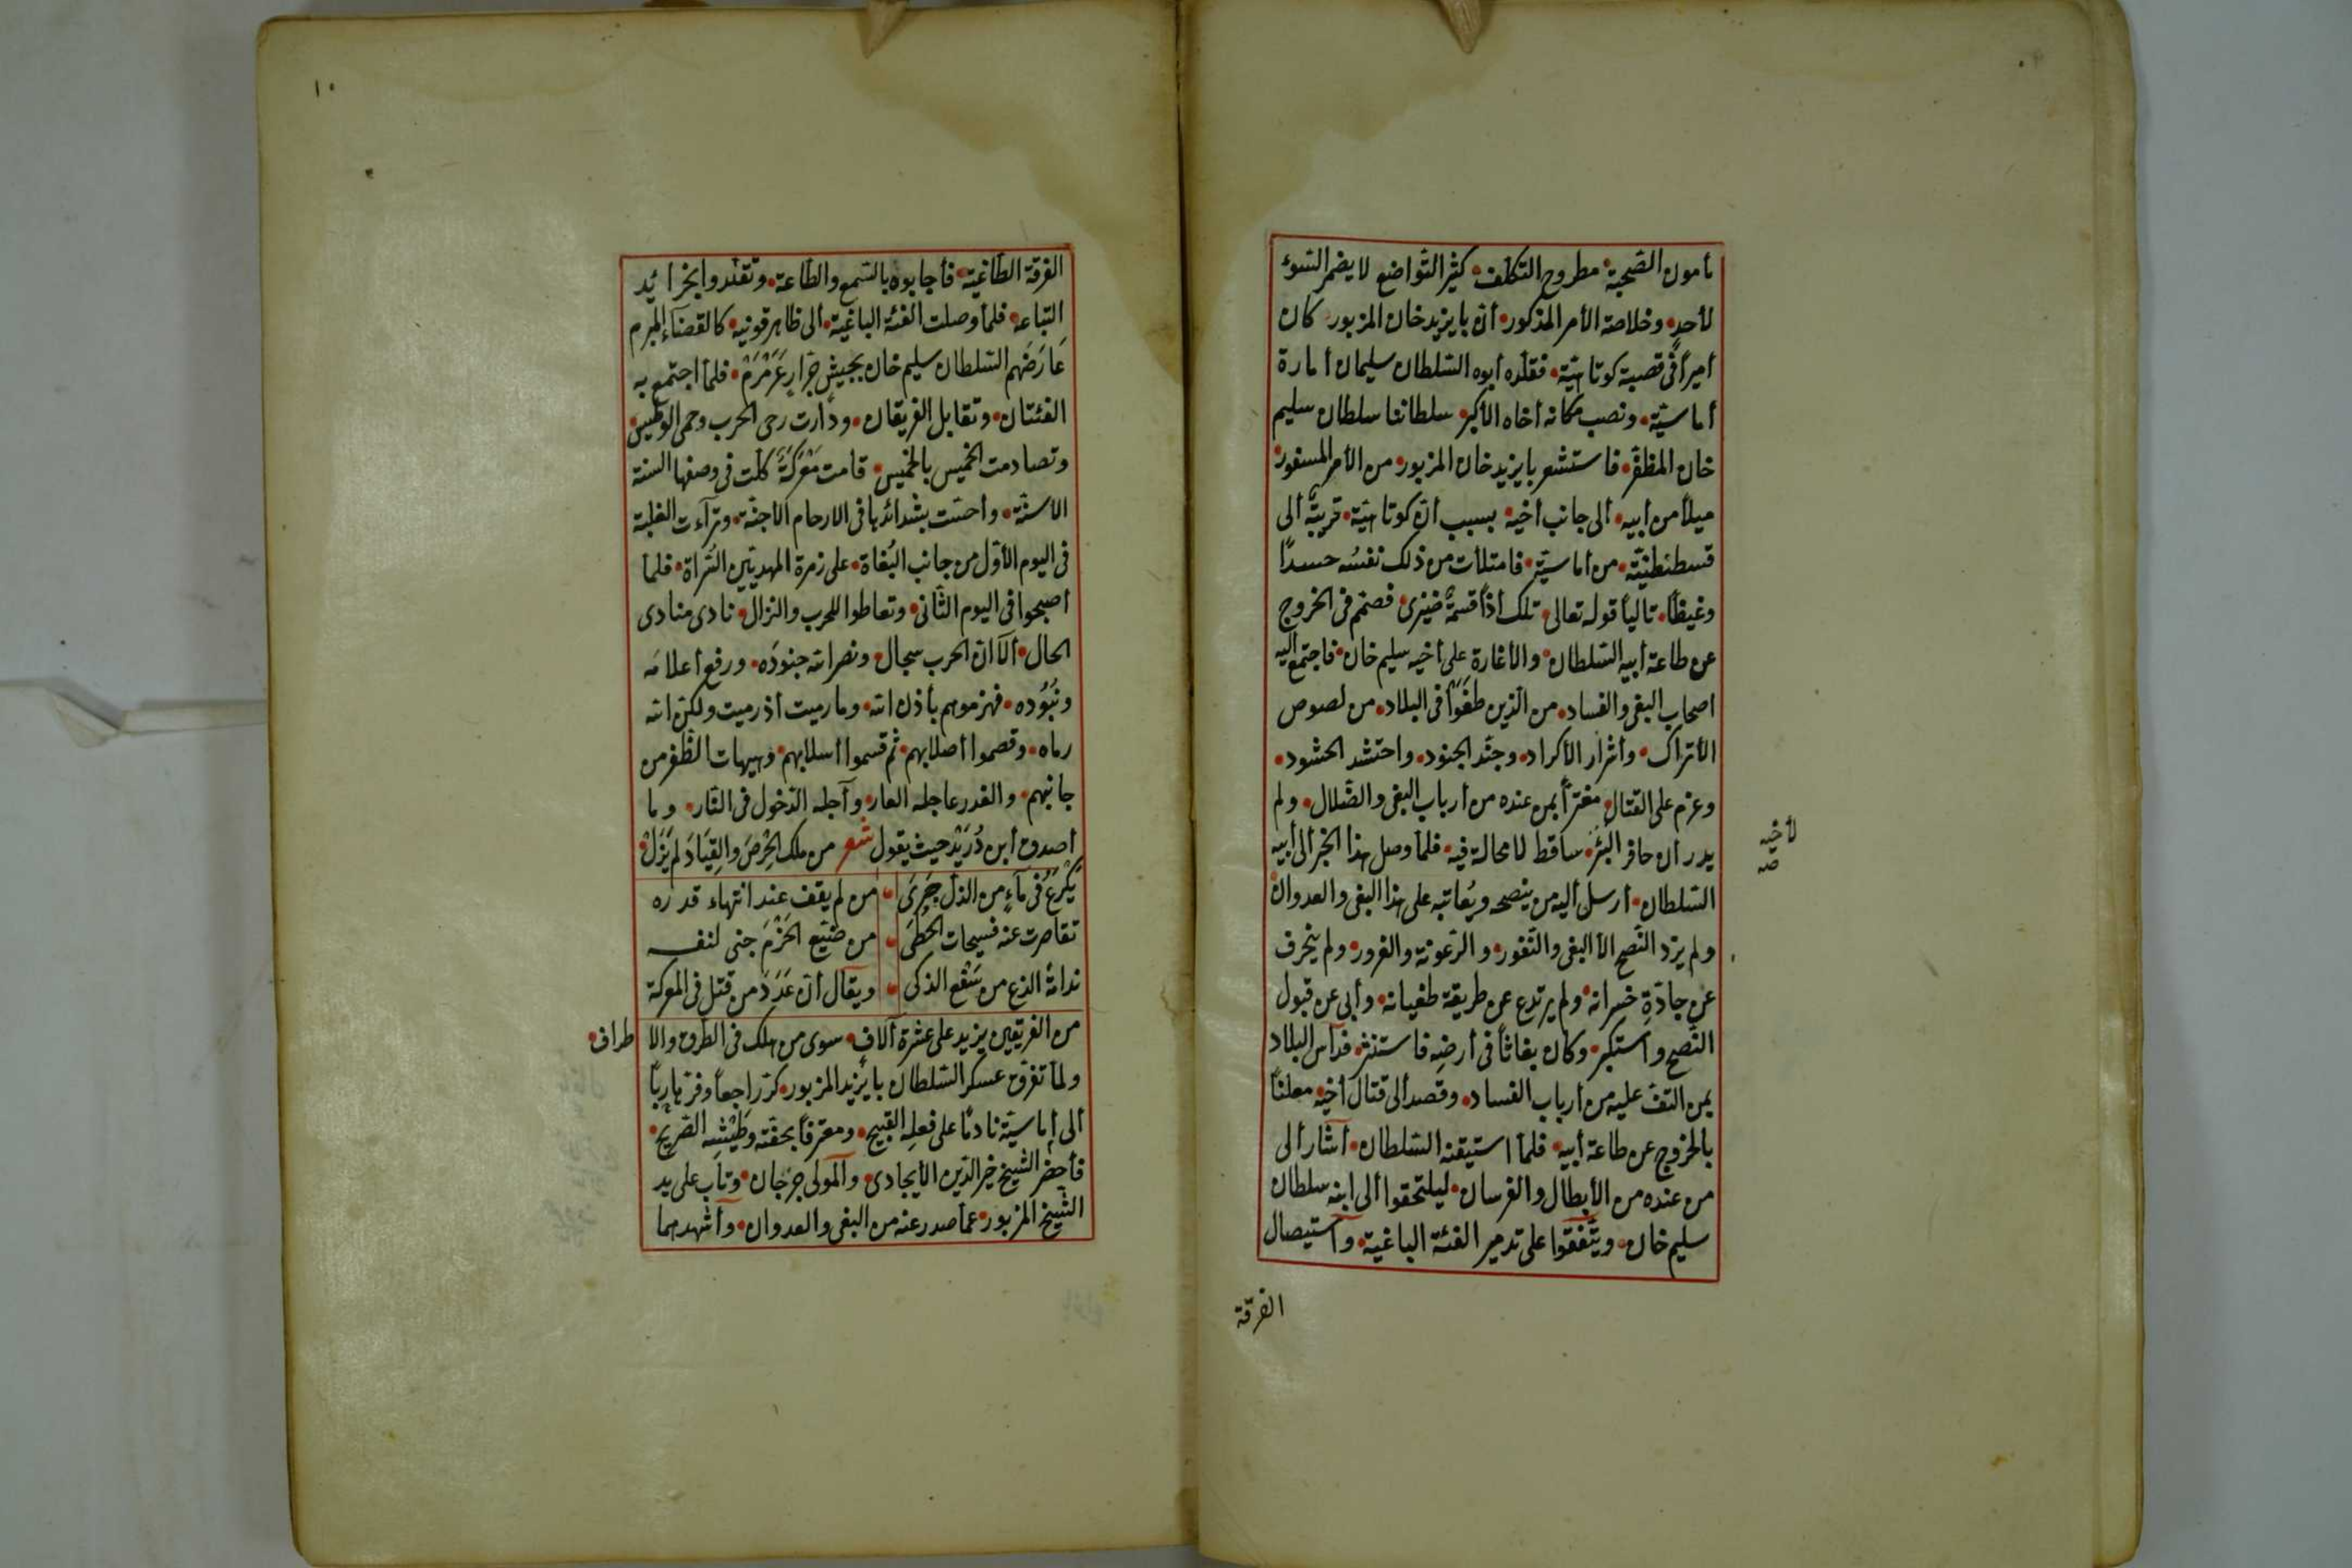 مأمون الصّحبة، مطروح التكلف، كثير التّواضع لا يضمر السّوء
لأحدٍ، وخلاصة الأمر المذكور، أنّ بايزيد خان المزبور كان
أميراً فى قصبة كوتاهيّة، فقلّده أبوه السّلطان سليمان أمارة
أماسيّة، ونصب مكانه أخاه الأكبر سلطاننا سلطان سليم
خان المظفّر، فاستشعر بايزيد خان المزبور، من الأمر المسفور
ميلاً من أبيه، ألى جانب أخيه بسبب أنّ كوتاهيّة، قريبةٌ ألى
قسطنطنيّة، من أماسيّة، فامتلأت من ذلك نفسُه حسدًا
وغيظًا، تاليًا قوله تعالى، تلك أذًا قسمةٌ ضيزى، فصمّم فى الخروج
عن طاعة أبيه السّلطان، والأغارة على أخيه سليم خان، فاجتمع أليه
اصحاب البغى والفساد، من الّذين طغَوْا فى البلاد، من لصوص
الأتراك، وأشرار الأكراد، وجنّد الجنود، واحتشد الحشود،
وعزم على القتال، مغترًا بمن عنده من أرباب البغى والضّلال، ولم
يدر أن حافر البئر، ساقط لا محالة فيه، فلمّا وصل هذا الخبر ألى أبيه
لأخيه
صه
السّلطان، أرسل أليه من ينصحه ويُعاتبه على هذا البغى والعدوان
ولم يزد النّصح الّا البغى والنّفور، والرّعونة والغرور، ولم ينحرف
عن جادّةِ خسرانه، ولم يرتدع عن طريقة طغيانه، وأبى عن قبول
النّصح واستكبر، وكان بغاثًا فى أرضِه فاستنسر، فداس البلاد
بمن التفّ عليه من أرباب الفساد، وقصد ألى قتال أخيه، معلنًا
بالخروج عن طاعة أبيه، فلمّا استيقنه السّلطان، أشار ألى
من عنده من الأبطال والفرسان، ليلتحقوا ألى ابنه سلطان
سليم خان، ويتّفقوا على تدمير الفئة الباغية، واستيصال
الفرقة
١٠
الفرقة الطّاغية، فأجابوه بالسّمع والطّاعة، وتقلّدوا بخرائد
التّباعة، فلمّا وصلت الفئة الباغية، ألى ظاهر قونيه، كالقضآء المبرم
عَارَضَهم السّلطان سليم خان بجيش جرّارٍ عَرَمْرَمْ، فلمّا اجتمع به
الفئتان، وتقابل الفريقان، ودارت رحى الحرب وحمى الوطيس،
وتصادمت الخميس بالخميس، قامت مَعْرَكَةٌ كلّت فى وصفها السنة
الأسنّة، وأحسّت بشدائدها فى الارحام الأجنّة، وترآءت الغلبة
فى اليوم الأوّل من جانب البُغاة، على زمرة المهديّين السُّراة، فلمّا
أصبحوا فى اليوم الثّانى، وتعاطوا للحرب والنزال، نادى منادى
الحال، ألَا انّ الحرب سجال، ونصر الله جنودَه، ورفع أعلامَه
وبُنُودَه، فهزموهم بأذن الله، وما رميت أذ رميت ولكن الله
رماه، وقصموا أصلابهم، ثم قسموا أسلابهم، وهيهات الظّفر من
جانبهم، والغدر عاجله العار، وآجله الدّخول فى النّار، وما
أصدق أبن دُرَيْد حيث يقول شعر من ملك الحِرْصَ والقِيَادَ لم يَزَلْ
يَكْرَعُ فى مآءٍ من الذلّ جَرَى ، من لم يقف عند انتهاء قدره
تقاصرت عنه فسيحات الخُطَى ، من ضيّع الحَزْمَ جنى لنفسه
ندامةً الذع من سَفْعِ الذكى ، ويقال أنّ عَدَدَ من قتل فى المعركة
من الفريقين يزيد على عشرة آلاف، سوى من هلك فى الطّرق والاطراف،
ولمّا تفرّق عسكر السّلطان بايزيد المزبور، كرّ راجعاً وفرّ هاربًا
ألى أماسيّة نادمًا على فعله القبيح، ومعترفاً بحقته وَطَيْشِه الصّريح،
فأحضر الشّيخ خير الدّين الأيجادى، والمولى جرجان، وتاب على يد
الشّيخ المزبور، عمّا صدر عنه من البغى والعدوان، وأشهدهما